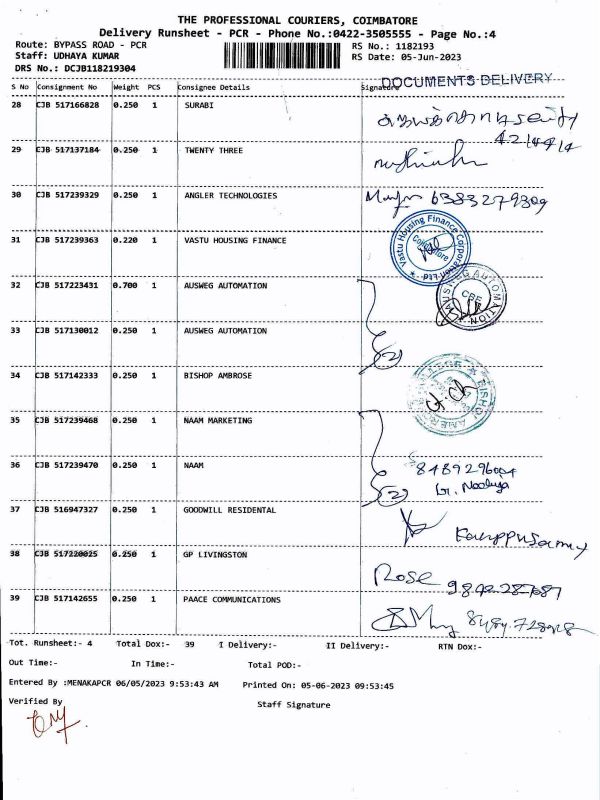 THE PROFESSIONAL COURIERS, COIMBATORE
Delivery Runsheet - PCR - Phone No.:0422-3505555 - Page No.:4
Route: BYPASS ROAD - PCR
RS No.: 1182193
Staff: UDHAYA KUMAR
RS Date: 05-Jun-2023
DRS No.: DCJB118219304
DOCUMENTS DELIVERY
S No Consignment No Weight PCS Consignee Details Signature
28 CJB 517166828 0.250 1 SURABI
29 CJB 517137184 0.250 1 TWENTY THREE
30 CJB 517239329 0.250 1 ANGLER TECHNOLOGIES 6383279309
31 CJB 517239363 0.220 1 VASTU HOUSING FINANCE
Vastu Housing Finance Corporation Ltd
32 CJB 517223431 0.700 1 AUSWEG AUTOMATION
AUSWEG AUTOMATION
CBE
33 CJB 517130012 0.250 1 AUSWEG AUTOMATION
(2)
34 CJB 517142333 0.250 1 BISHOP AMBROSE
35 CJB 517239468 0.250 1 NAAM MARKETING
36 CJB 517239470 0.250 1 NAAM
(2)
37 CJB 516947327 0.250 1 GOODWILL RESIDENTAL
38 CJB 517220025 0.250 1 GP LIVINGSTON Rose
39 CJB 517142655 0.250 1 PAACE COMMUNICATIONS
Tot. Runsheet:- 4 Total Dox:- 39 I Delivery:- II Delivery:- RTN Dox:-
Out Time:- In Time:- Total POD:-
Entered By :MENAKAPCR 06/05/2023 9:53:43 AM Printed On: 05-06-2023 09:53:45
Verified By Staff Signature